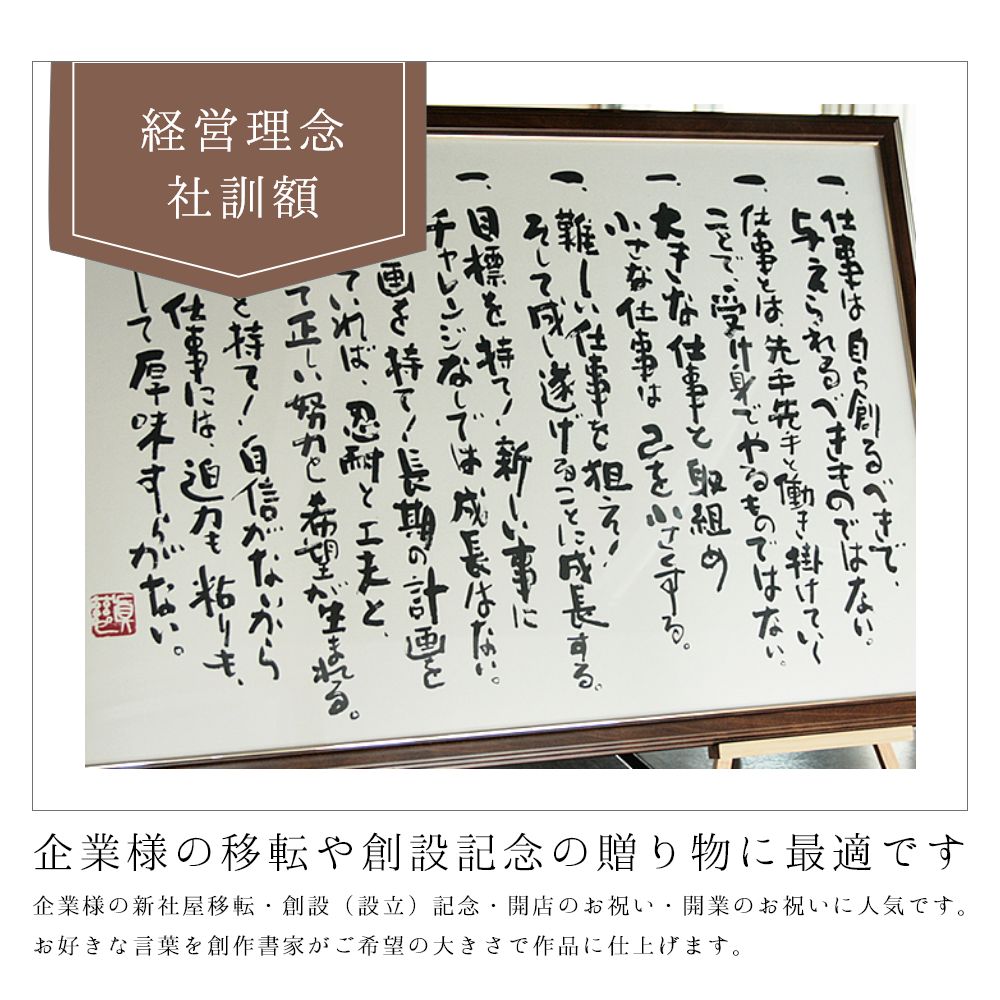 経営理念
社訓額
一、仕事は自ら創るべきで、
与えられるべきものではない。
一、仕事とは、先手先手と働き掛けていく
ことで、受け身でやるものではない。
一、大きな仕事と取組め
小さな仕事は己を小さくする。
一、難しい仕事を狙え!
そして成し遂げることに成長する。
一、目標を持て!新しい事に
チャレンジなしでは成長はない。
画を持て!長期の計画を
ていれば、忍耐と工夫と、
て正しい努力と希望が生まれる。
と持て!自信がないから
仕事には、迫力も粘りも、
して厚味すらがない。
企業様の移転や創設記念の贈り物に最適です
企業様の新社屋移転・創設（設立）記念・開店のお祝い・開業のお祝いに人気です。
お好きな言葉を創作書家がご希望の大きさで作品に仕上げます。